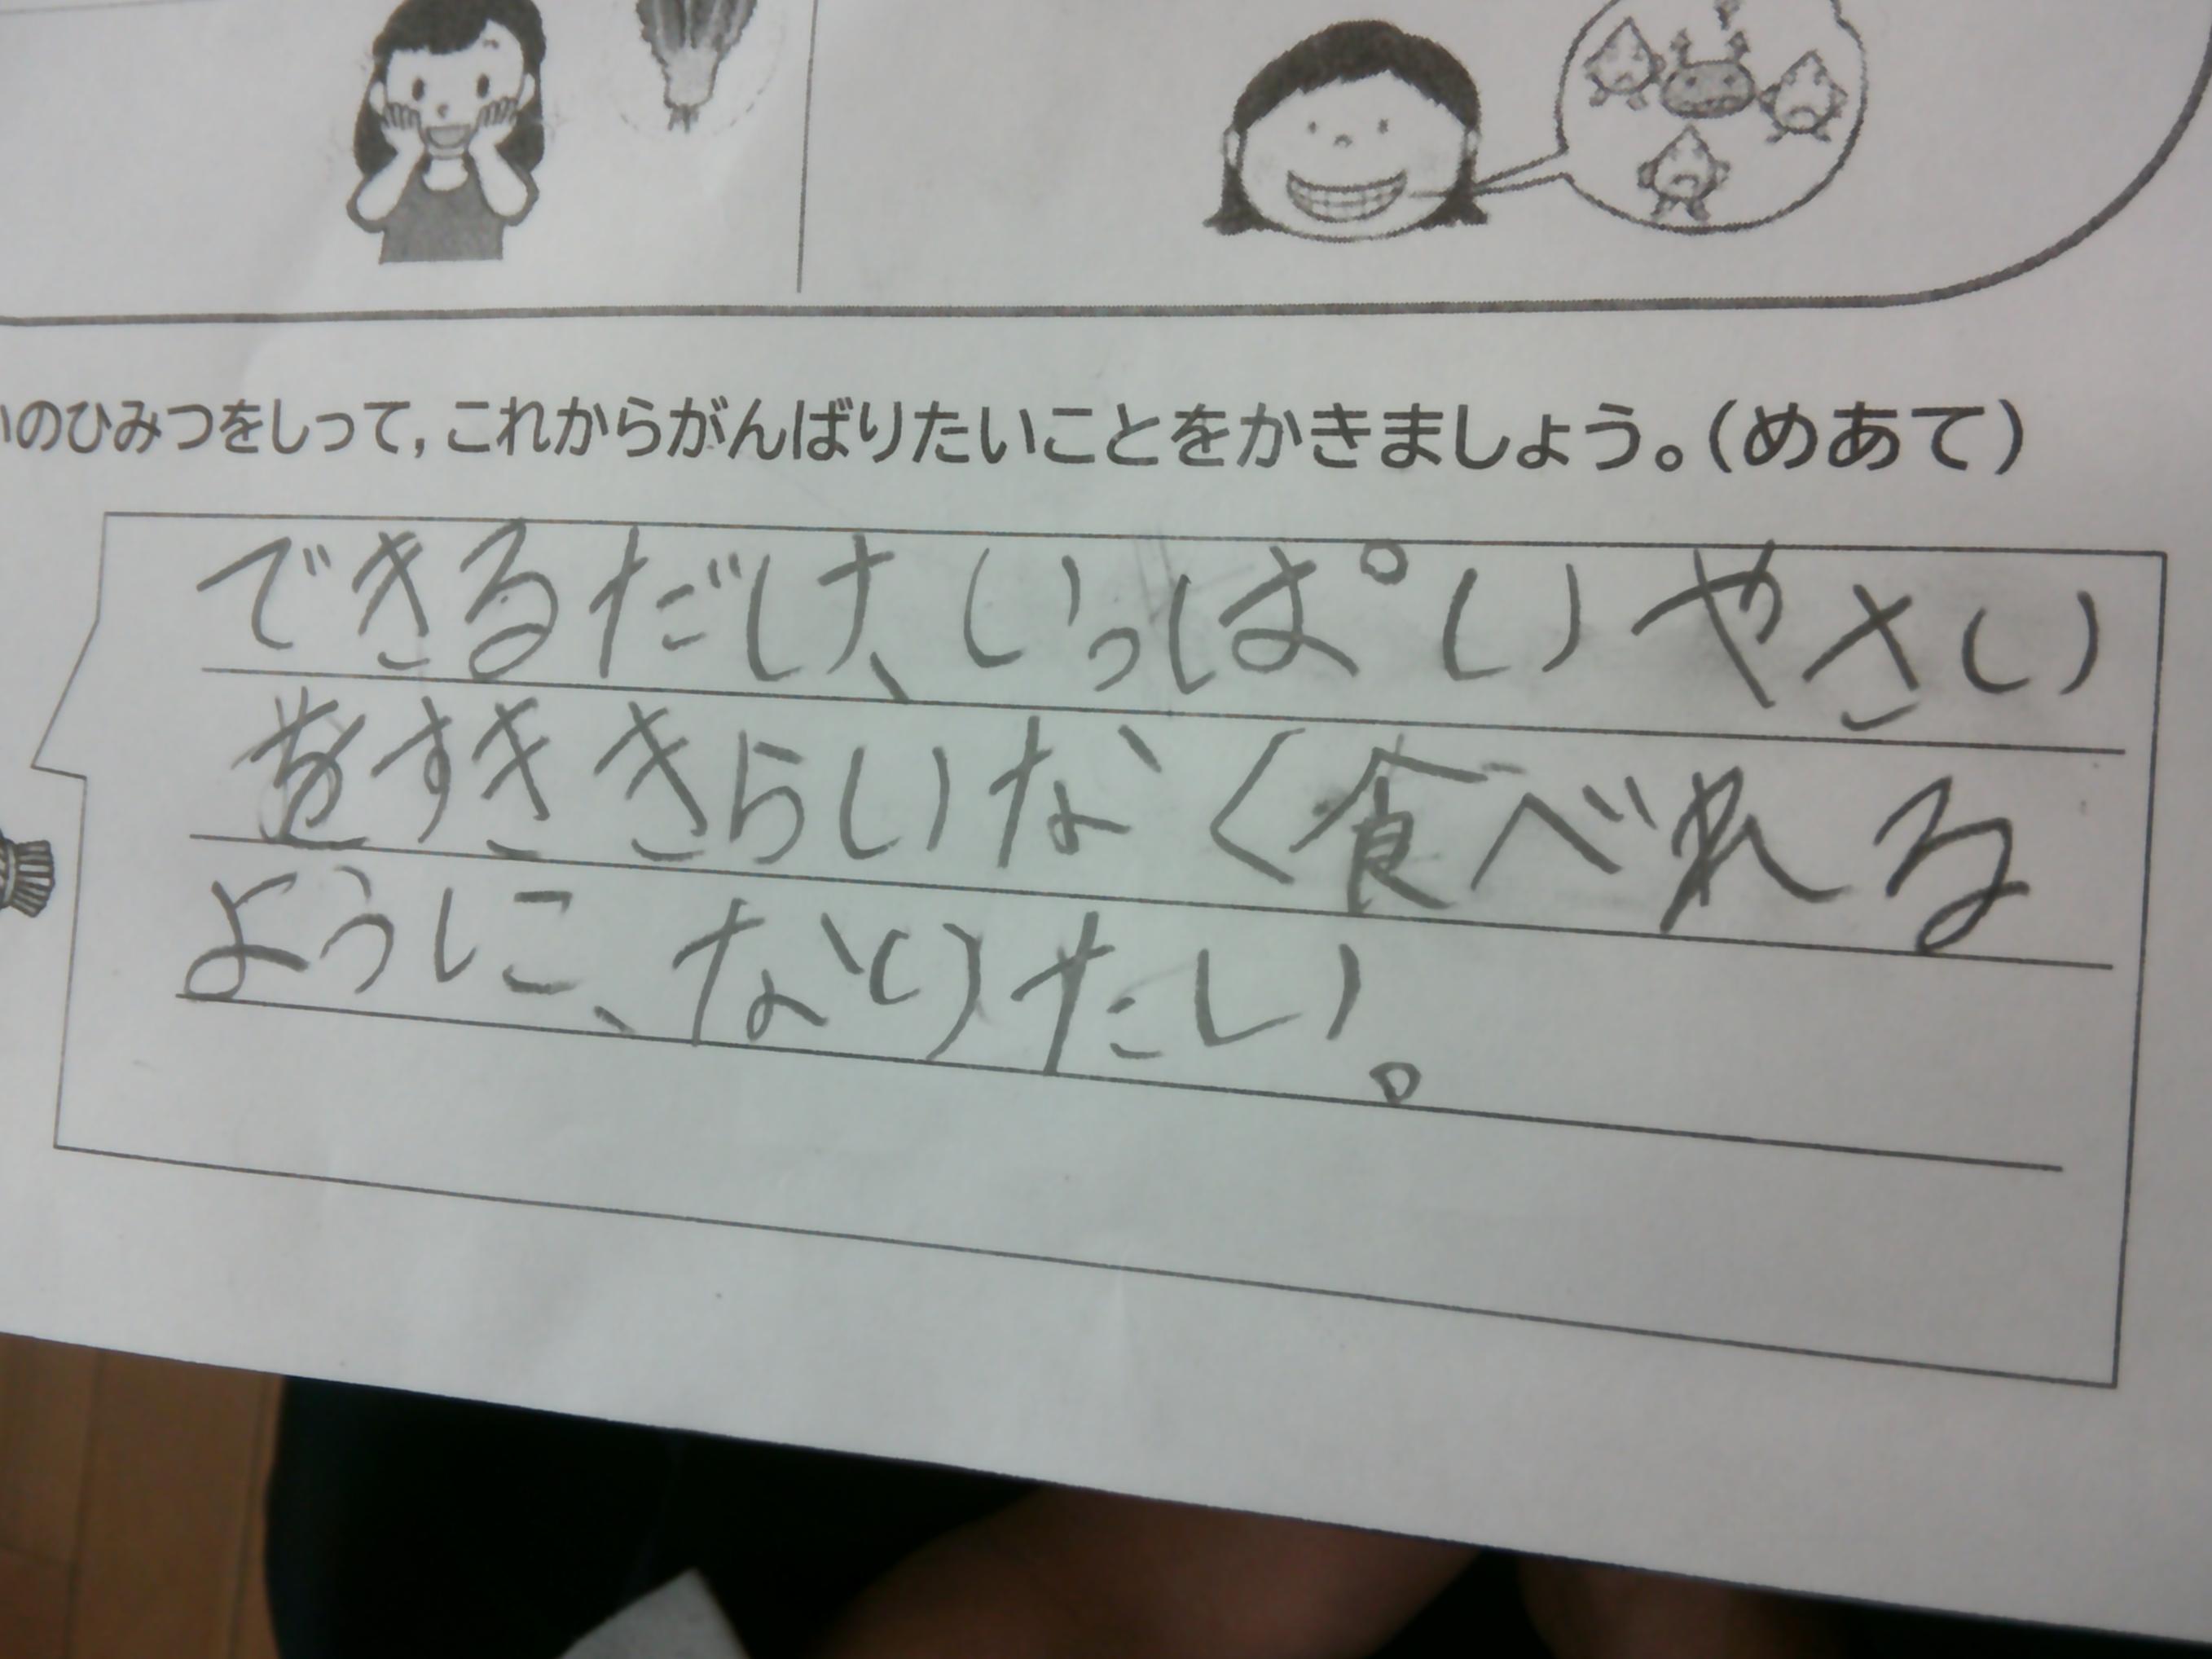 いのひみつをしって，これからがんばりたいことをかきましょう。（めあて）
できるだけ、いっぱいやさい
をすききらいなく食べれる
ように、なりたい。